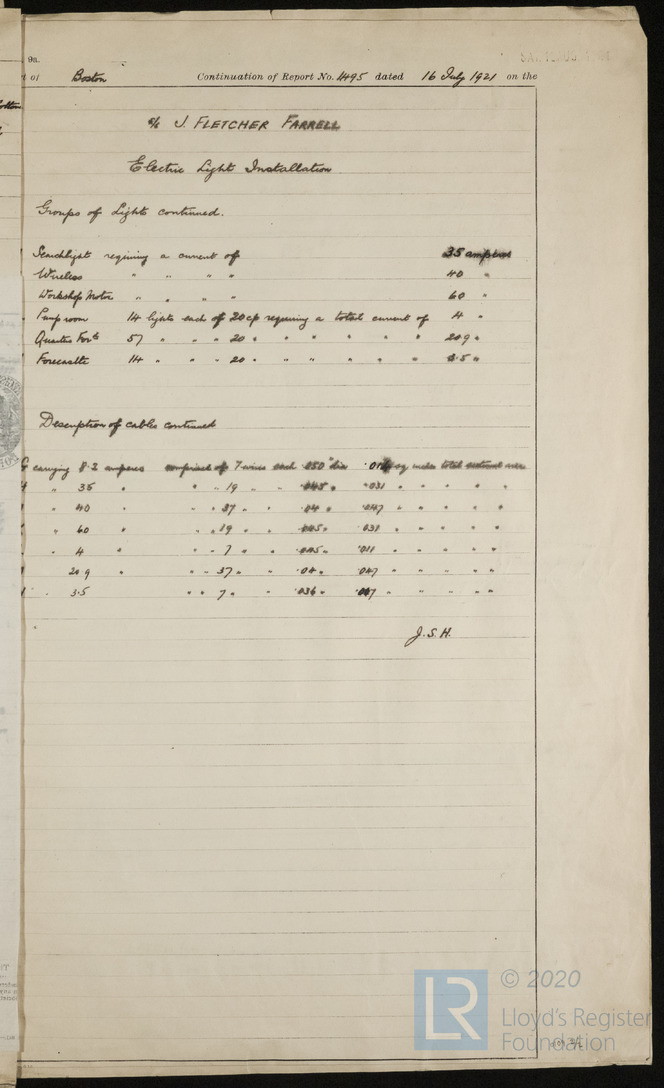 9a.
t of Boston Continuation of Report No. 4495 dated 16 July 1921 on the
S/S J. FLETCHER FARRELL
Electric Light Installation
Groups of Lights continued.
Searchlight requiring a current of 35 amperes
Wireless " " " " 40 "
Workshop Motor " " " " 60 "
Pump room 14 lights each of 20 cp requiring a total current of 4 "
Quarters Ford 57 " " " 20 " " " " " " 20.9 "
Forecastle 14 " " " 20 " " " " " " 3.5 "
Description of cables continued
carrying 8.2 amperes comprised of 7 wires each .050" dia sq inches total sectional area
" 35 " " " 19 " " .045 " .031 " " " " "
" 40 " " " 37 " " .04 " .047 " " " " "
" 60 " " " 19 " " .045 " .031 " " " " "
" 4 " " " 7 " " .045 " .011 " " " " "
20.9 " " " 37 " " .04 " .047 " " " " "
" 3.5 " " 7 " " .036 " " " " " "
J.S.H.
LR
© 2020
Lloyd's Register
Foundation